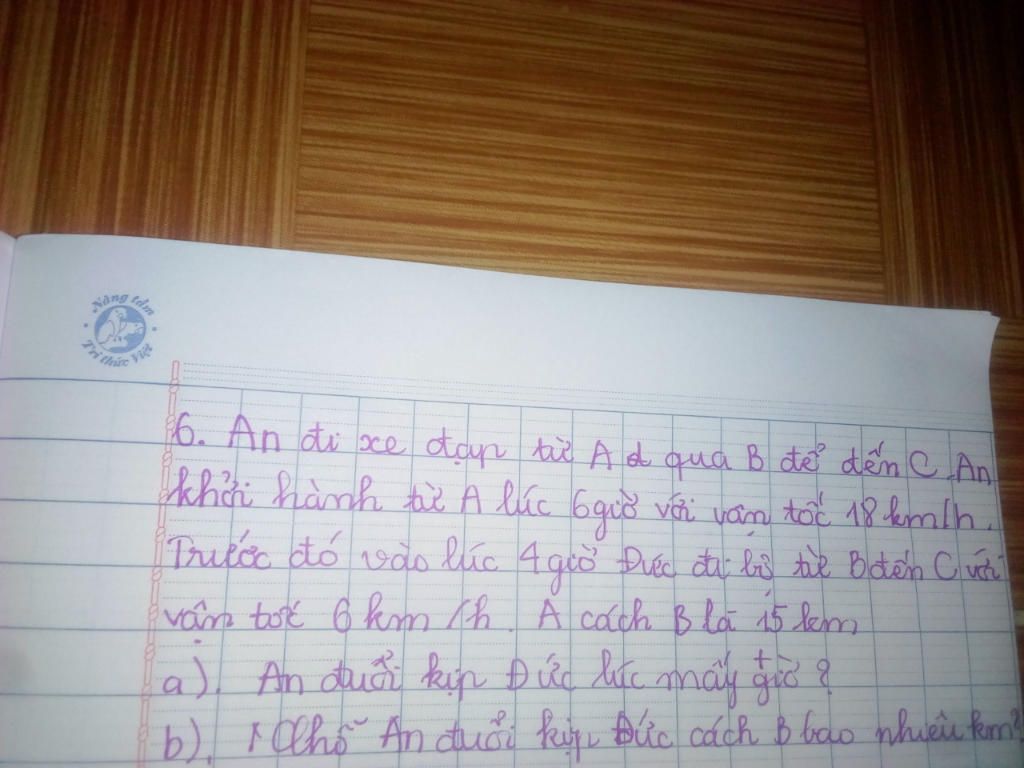 Nâng tầm
Tri thức Việt
6. An đi xe đạp từ A đ qua B để đến C. An
khởi hành từ A lúc 6 giờ với vận tốc 18 km/h.
Trước đó vào lúc 4 giờ Đức đi bộ từ B đến C với
vận tốc 6 km/h. A cách B là 15 km
a). An đuổi kịp Đức lúc mấy giờ?
b). Chỗ An đuổi kịp Đức cách B bao nhiêu km?